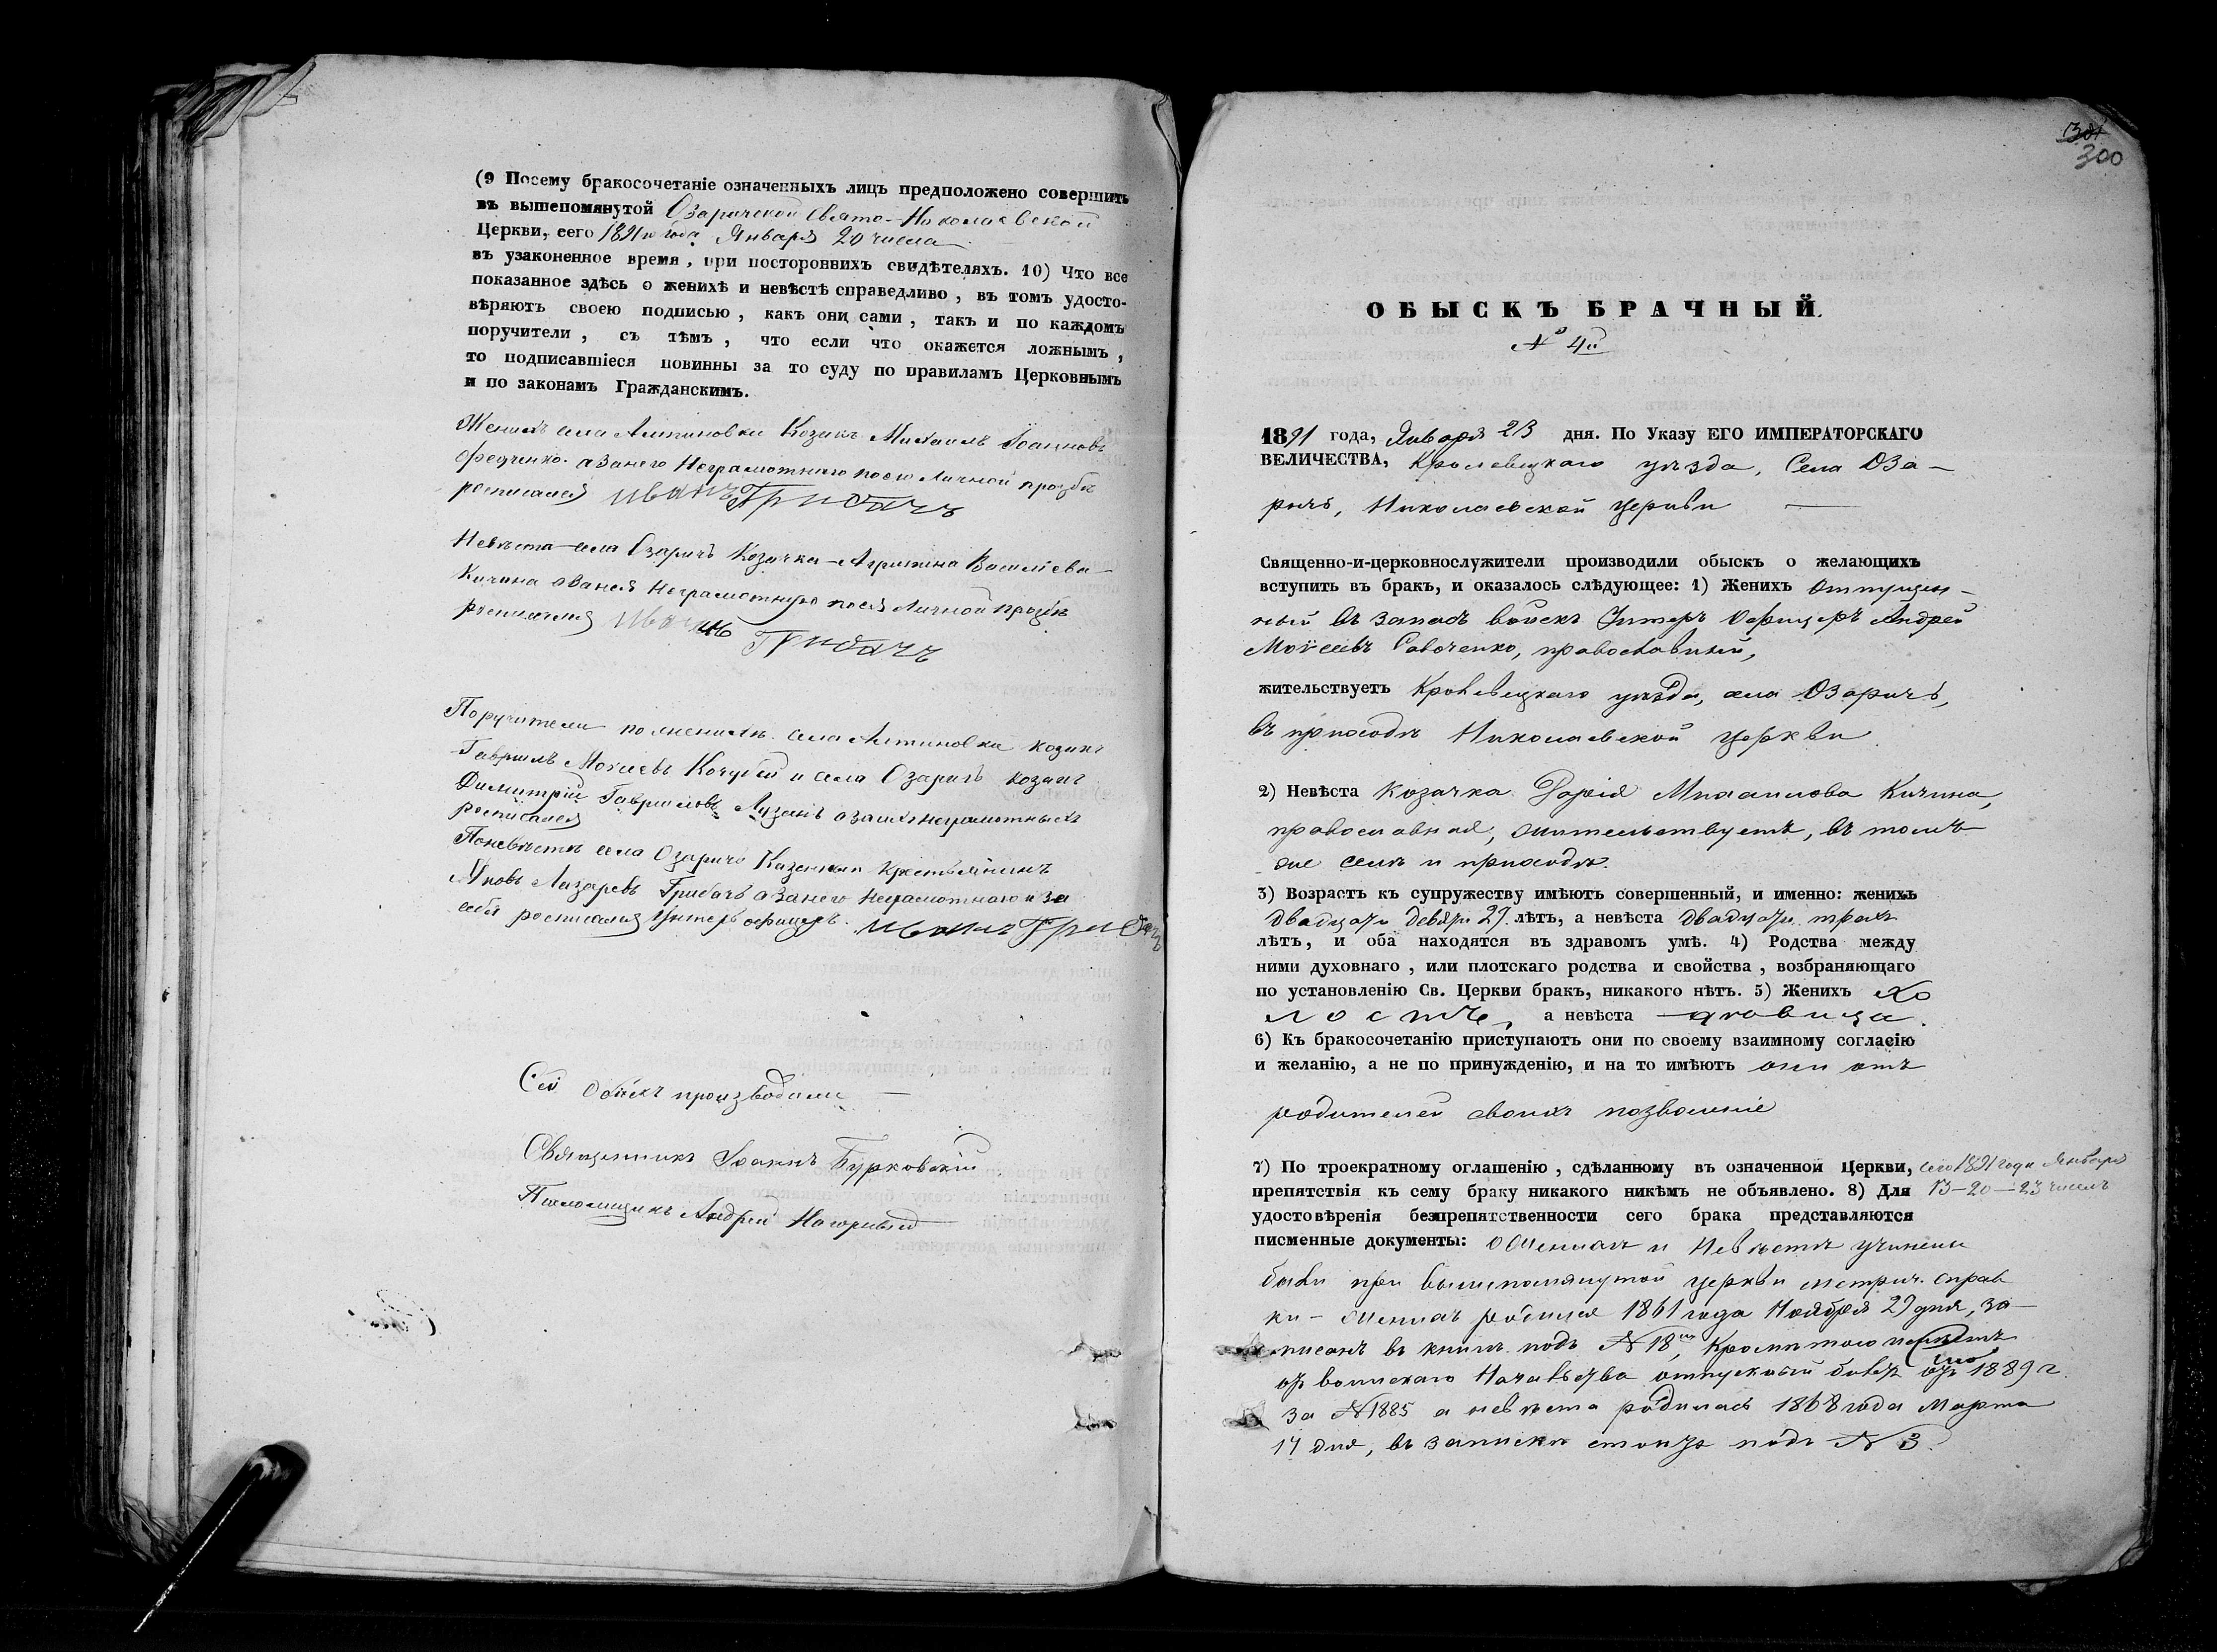 (9 Посему бракосочетаніе означенныхъ лицъ предположено совершить
въ вышепомянутой Озаричской Свято-Николаевской
Церкви, сего 1891го года Января 20 числа
въ узаконенное время, при постороннихъ свидѣтеляхъ. 10) Что все
показанное здѣсь о женихѣ и невѣстѣ справедливо, въ томъ удосто-
вѣряютъ своею подписью, какъ они сами, такъ и по каждомъ
поручители, съ тѣмъ, что если что окажется ложнымъ,
то подписавшіеся повинны за то суду по правиламъ Церковнымъ
и по законамъ Гражданскимъ.
Женихъ села Алтиновки Козакъ Михаилъ Іоанновъ
Федченко. а за него Неграмотнаго по его личной прозбѣ
росписался Иванъ Грибачъ
Невѣста села Озаричъ Козачка Агрипина Васильева
Кичина а за нея Неграмотную по ея личной прозбѣ
росписался Иванъ Грибачъ
Поручители по женихѣ села Алтиновки козакъ
Гавриилъ Моисеевъ Кочубей и села Озаричъ козакъ
Димитрій Гавриловъ Лузанъ а за ихъ неграмотныхъ
росписался
По невѣстѣ села Озаричъ Казенный крестьянинъ
Яковъ Лазаревъ Грибачъ а за него неграмотнаго и за
себя росписался Унтеръ офицеръ Иванъ Грибачъ
Сей обыскъ производили
Священникъ Іоаннъ Бурковскій
Псаломщикъ Андрей Нагорный
301
300
ОБЫСКЪ БРАЧНЫЙ.
№ 4й
1891 года, Января 23 дня. По Указу ЕГО ИМПЕРАТОРСКАГО
ВЕЛИЧЕСТВА, Кролевецкаго уѣзда, Села Оза-
ричъ, Николаевской церкви
Священно-и-церковнослужители производили обыскъ о желающихъ
вступить въ бракъ, и оказалось слѣдующее: 1) Женихъ Отпущен-
ный въ запасъ войскъ Унтеръ Офицеръ Андрей
Моѵсеевъ Савоченко, православный,
жительствуетъ Кролевецкаго уѣзда, села Озаричъ,
въ приходѣ Николаевской церкви
2) Невѣста Козачка Дарія Михаилова Кичина,
православная, жительствуетъ, въ томъ
же селѣ и приходѣ.
3) Возрастъ къ супружеству имѣютъ совершенный, и именно: женихъ
двадцати девяти 29 лѣтъ, а невѣста двадцати трехъ
лѣтъ, и оба находятся въ здравомъ умѣ. 4) Родства между
ними духовнаго, или плотскаго родства и свойства, возбраняющаго
по установленію Св. Церкви бракъ, никакого нѣтъ. 5) Женихъ хо
лостъ, а невѣста дѣвица.
6) Къ бракосочетанію приступаютъ они по своему взаимному согласію
и желанію, а не по принужденію, и на то имѣютъ они отъ
родителей своихъ позволеніе
7) По троекратному оглашенію, сдѣланному въ означенной Церкви, сего 1891 года Января
препятствія къ сему браку никакого никѣмъ не объявлено. 8) Для 13-20-23 числъ
удостовѣренія безпрепятственности сего брака представляются
писменные документы: о Женихѣ и Невѣстѣ учинены
были при вышепомянутой церкви метрич. справ
ки - Женихъ родился 1861 года Ноября 29 дня, за-
писанъ въ книгѣ подъ № 18, Кромѣ того
отъ воинскаго Начальства отпускный билетъ 1889 г.
за №1885 а невѣста родилась 1868 года Марта
17 дня, въ запискѣ стоитъ подъ № 3.